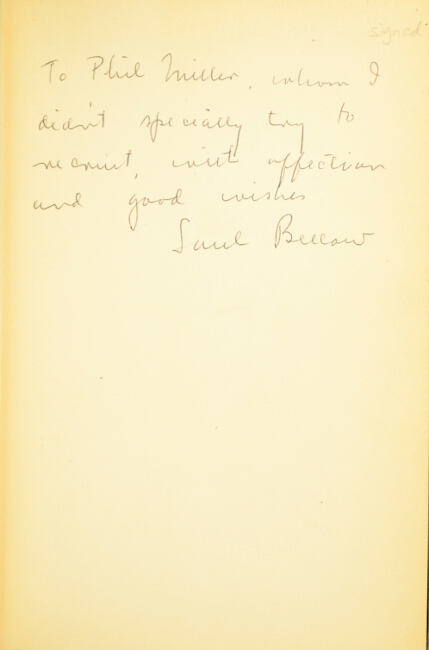 signed
To Phil Miller, whom I
didn't specially try to
recruit, with affection
and good wishes
Saul Bellow